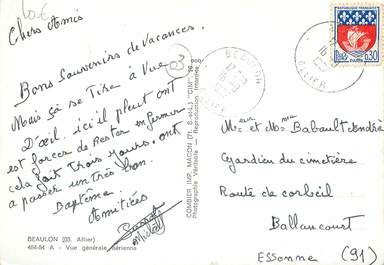 Chers Amis
Bons Souvenirs de Vacances.
Mais ça se Tire à Vue
D'œil. ici il pleut ont
est forcer de Rester enfermer
cela fait trois jours. ont
a passer un très bon
Baptême.
Amitiées
Michel
BEAULON (03. Allier)
464-54 A - Vue générale aérienne
COMBIER IMP. MACON (Tl. S.-et-L.) "CIM"
Photographie Véritable - Reproduction Interdite
BEAULON
ALLIER
REPUBLIQUE FRANÇAISE
0,30
PARIS
Meur et Mme Babault André
Gardien du cimetière
Route de corbeil
Ballancourt
Essonne (91)